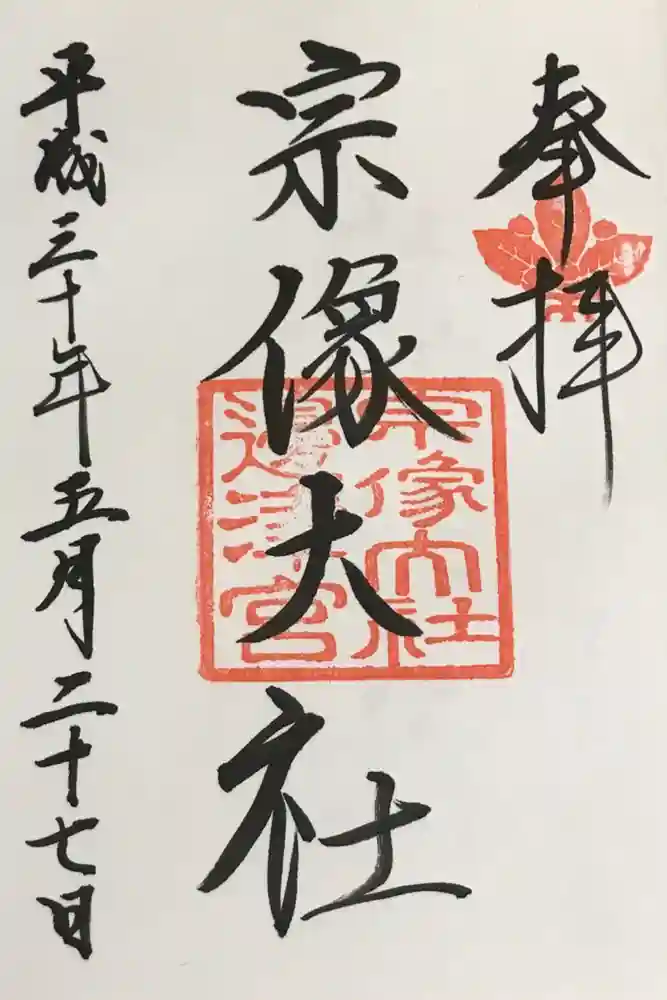 奉拝
宗像大社
宗像大社
邊津宮
平成三十年五月二十七日